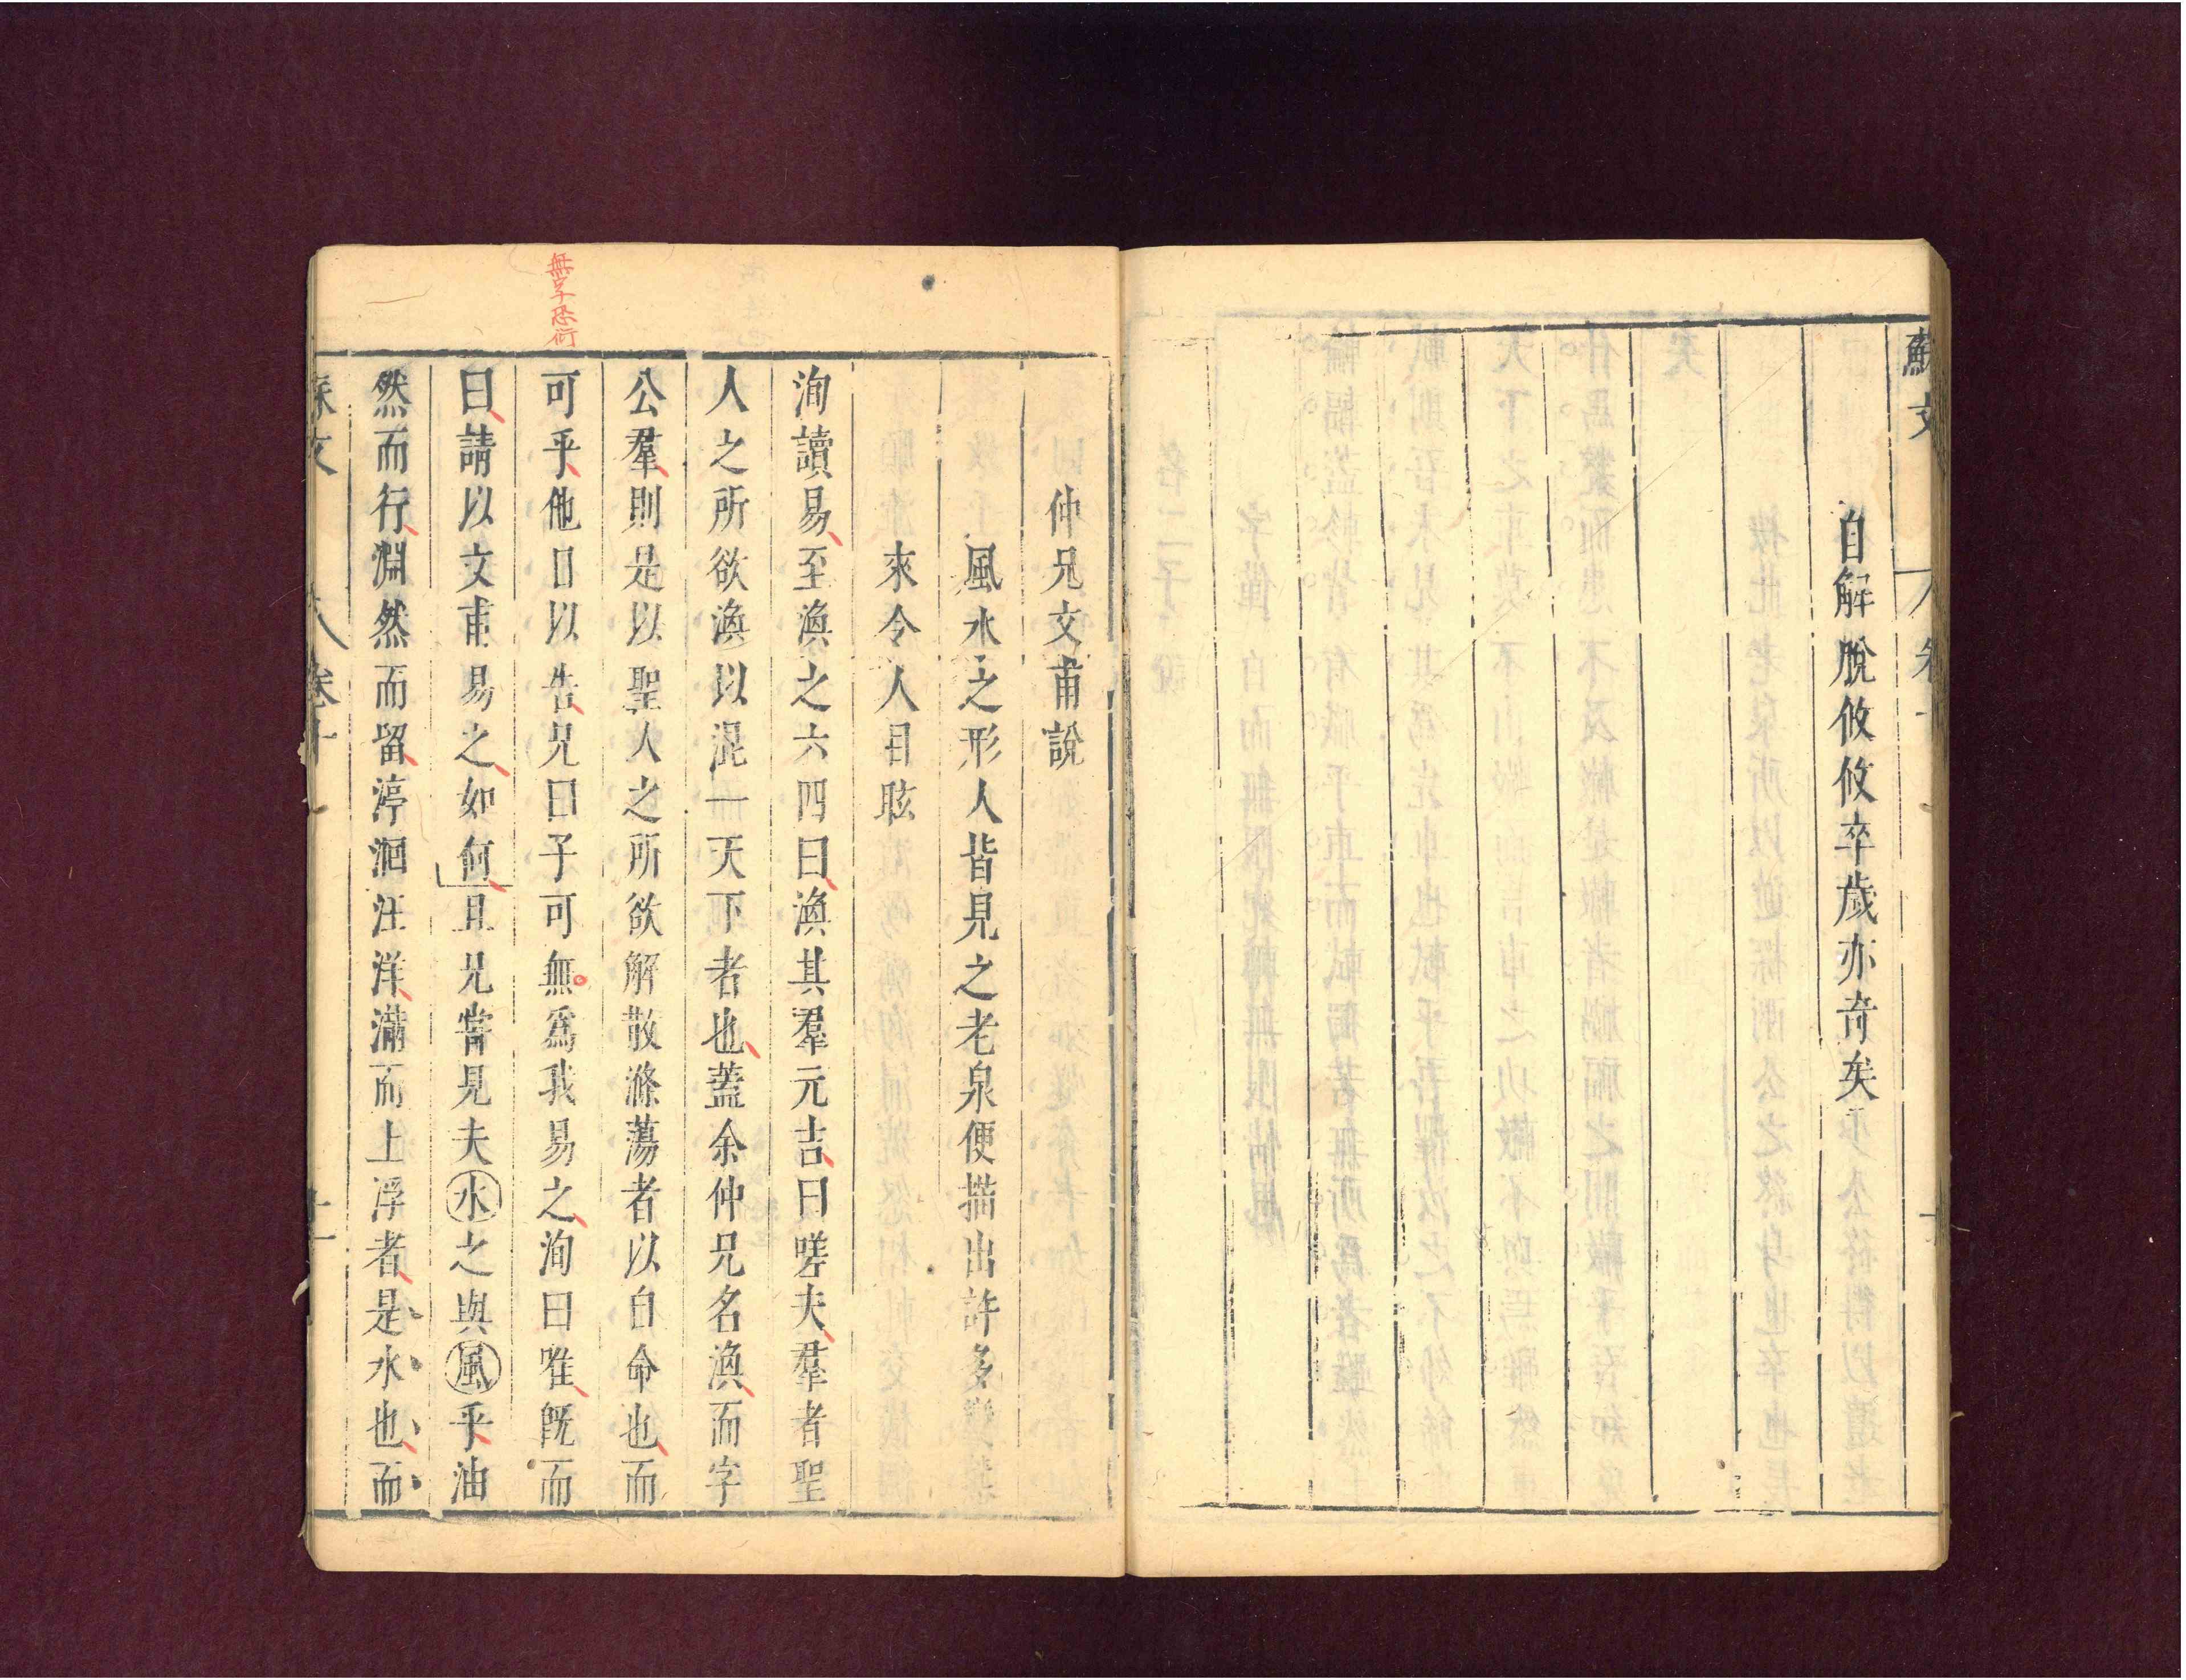 蘇文
卷十
自解脫攸攸卒歲亦奇矣
仲兄文甫說
風水之形人皆見之老泉便描出許多變態
來令人目眩
洵讀易至渙之六四曰渙其羣元吉曰嗟夫羣者聖
人之所欲渙以混一天下者也蓋余仲兄名渙而字
公羣則是以聖人之所欲解散滌蕩者以自命也而
可乎他日以告兄曰子可無爲我易之洵曰唯旣而
曰請以文甫易之如何且兄嘗見夫水之與風乎油
然而行淵然而留渟洄汪洋滿而上浮者是水也而
無字恐衍
蘇文
卷十
十一